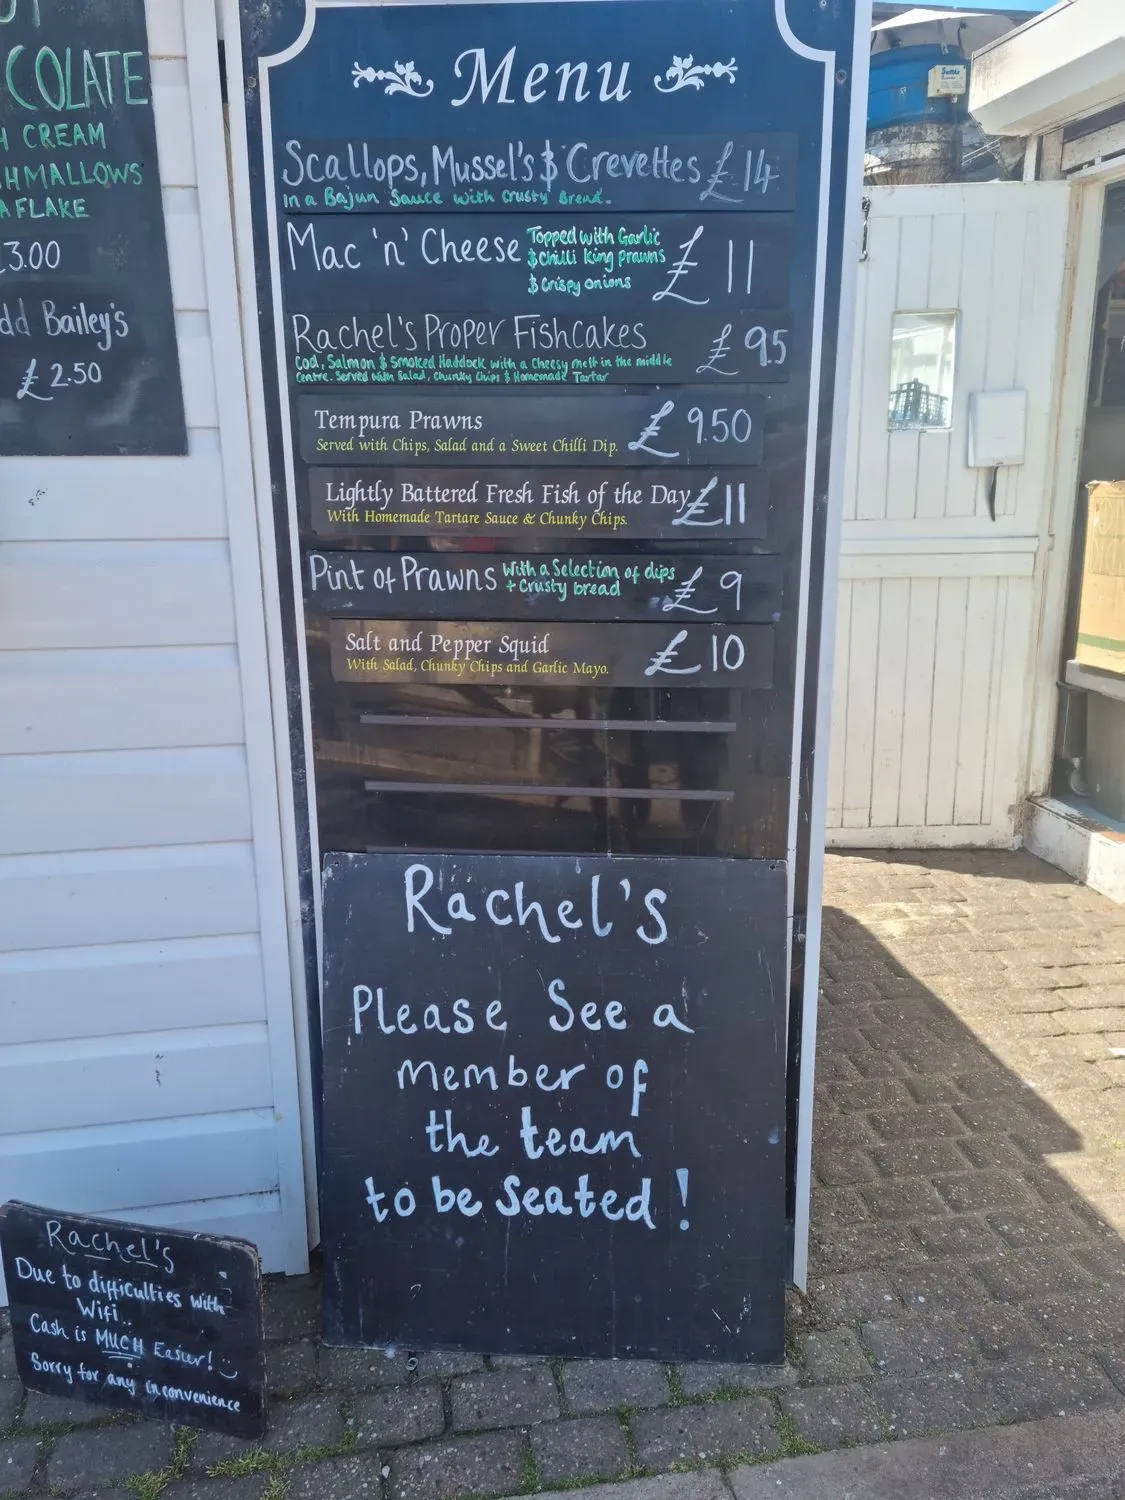 COLATE
CREAM
HMALLOWS
A FLAKE
3.00
dd Bailey's
£2.50
Menu
Scallops, Mussel's $ Crevettes £14
In a Bajun Sauce With Crusty Bread.
Mac 'n' Cheese £11
Topped with Garlic
$ Chilli King prawns
$ Crispy onions
Rachel's Proper Fishcakes £9.5
Cod, Salmon $ Smoked Haddock with a Cheesy melt in the middle
Centre. Served With Salad, Chunky Chips $ Homemade Tartar
Tempura Prawns £9.50
Served with Chips, Salad and a Sweet Chilli Dip.
Lightly Battered Fresh Fish of the Day £11
With Homemade Tartare Sauce & Chunky Chips.
Pint of Prawns £9
With a Selection of dips
+ Crusty bread
Salt and Pepper Squid £10
With Salad, Chunky Chips and Garlic Mayo.
Rachel's
Please See a
member of
the team
to be Seated!
Rachel's
Due to difficulties with
Wifi..
Cash is MUCH Easier!
Sorry for any inconvenience